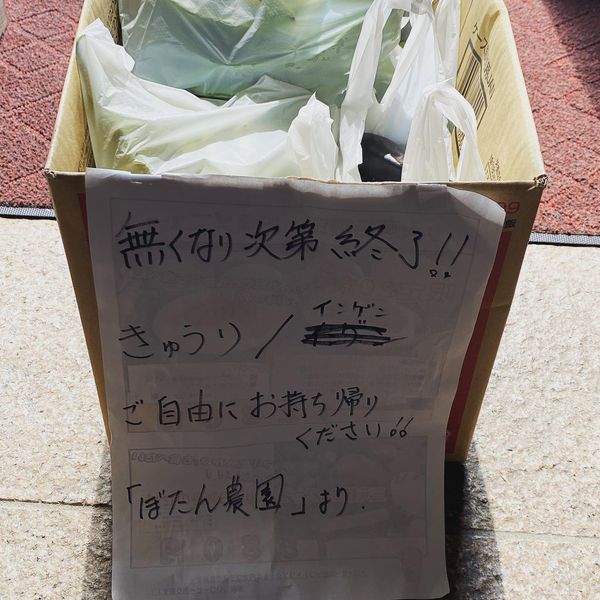 無くなり次第終了!!
きゅうり/インゲン
ご自由にお持ち帰り
ください!!
「ぼたん農園」より.